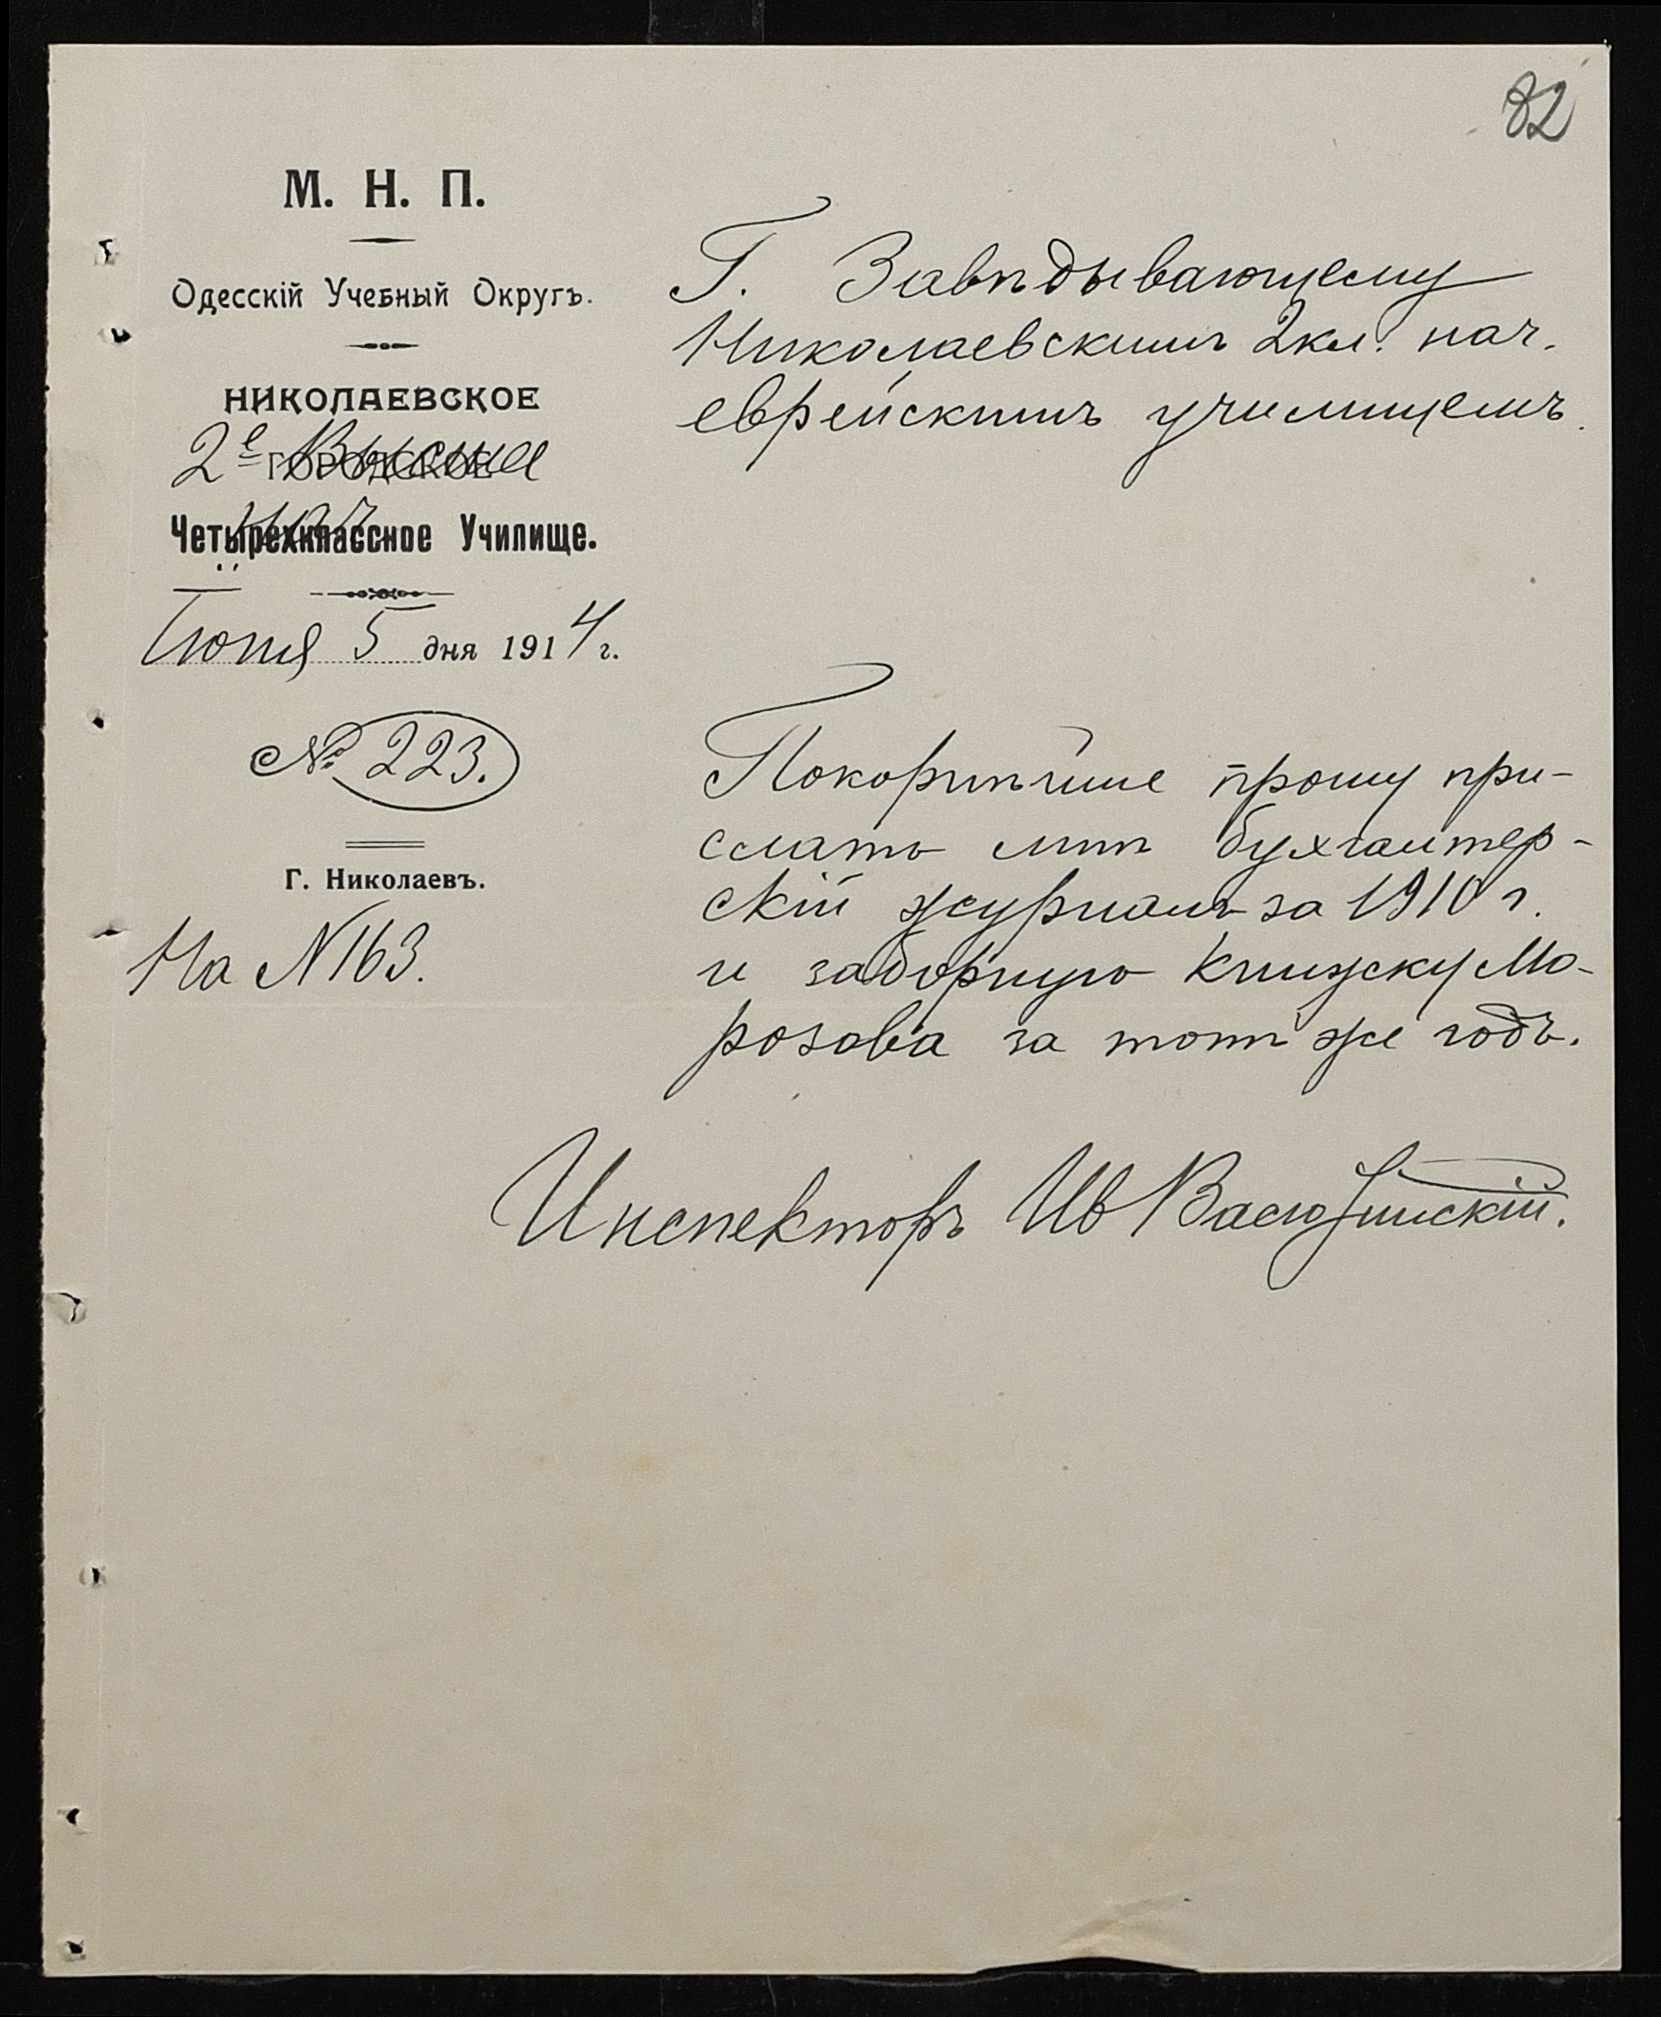 32
М. Н. П.
Одесскій Учебный Округъ.
НИКОЛАЕВСКОЕ
2е Высшее
ГОРОДСКОЕ
нач.
Четырехклассное Училище.
Іюня 5 дня 1914 г.
№ 223.
Г. Николаевъ.
На № 163.
Г. Завѣдывающему
Николаевскимъ 2кл. нач.
еврейскимъ училищемъ.
Покорнѣйше прошу при-
слать мнѣ бухгалтер-
скій журналъ за 1910 г.
и заборную книжку Мо-
розова за тотъ же годъ.
Инспекторъ Ив